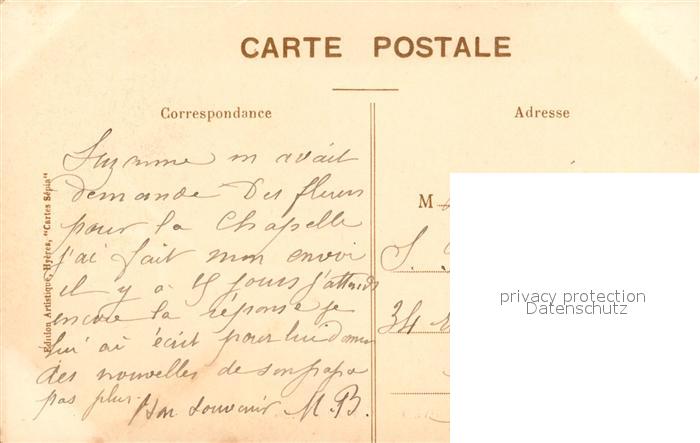 CARTE POSTALE
Correspondance
Suzanne m avait
demandé des fleurs
pour la Chapelle
j'ai fait mon envoi
il y a 15 jours j'attends
encore la réponse je
lui ai écrit pour lui donner
des nouvelles de son papa
pas plus. Bon souvenir M. B.
Edition Artistique, Hyères, "Cartes Sépia"
Adresse
M
34
privacy protection
Datenschutz